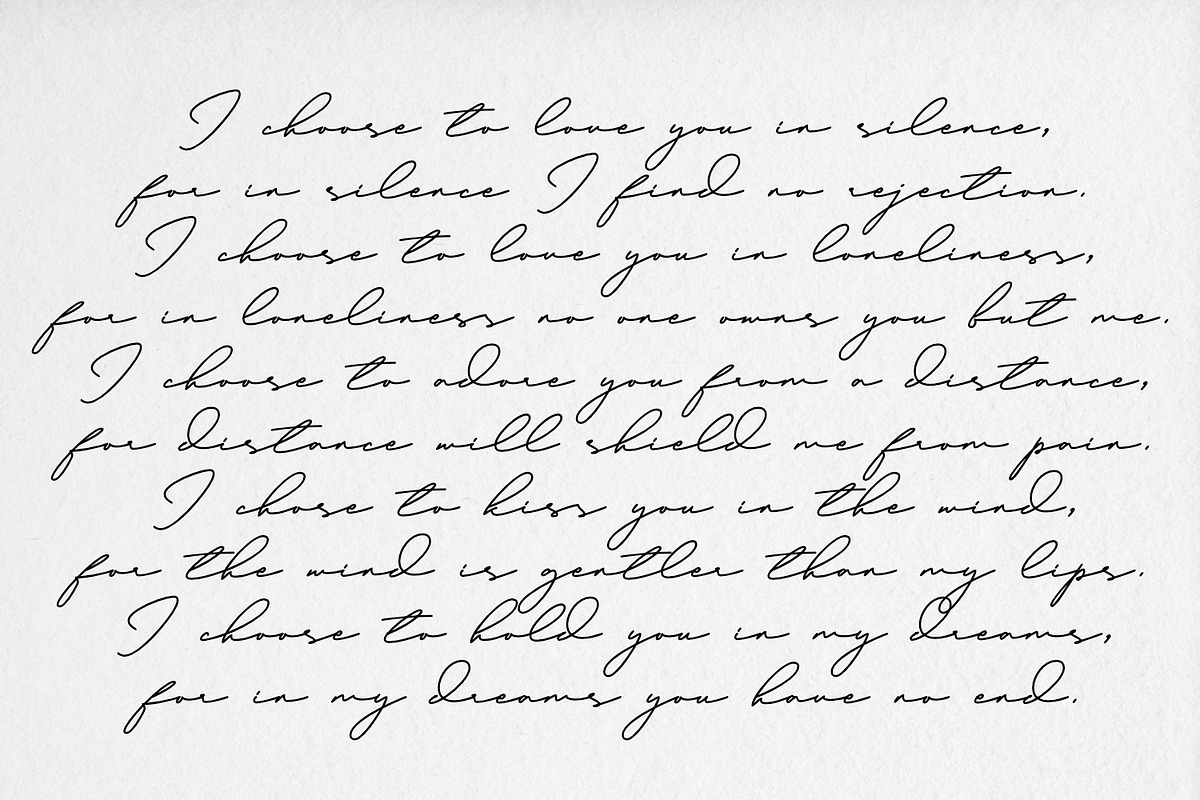 I choose to love you in silence,
for in silence I find no rejection.
I choose to love you in loneliness,
for in loneliness no one owns you but me.
I choose to adore you from a distance,
for distance will shield me from pain.
I chose to kiss you in the wind,
for the wind is gentler than my lips.
I choose to hold you in my dreams,
for in my dreams you have no end.